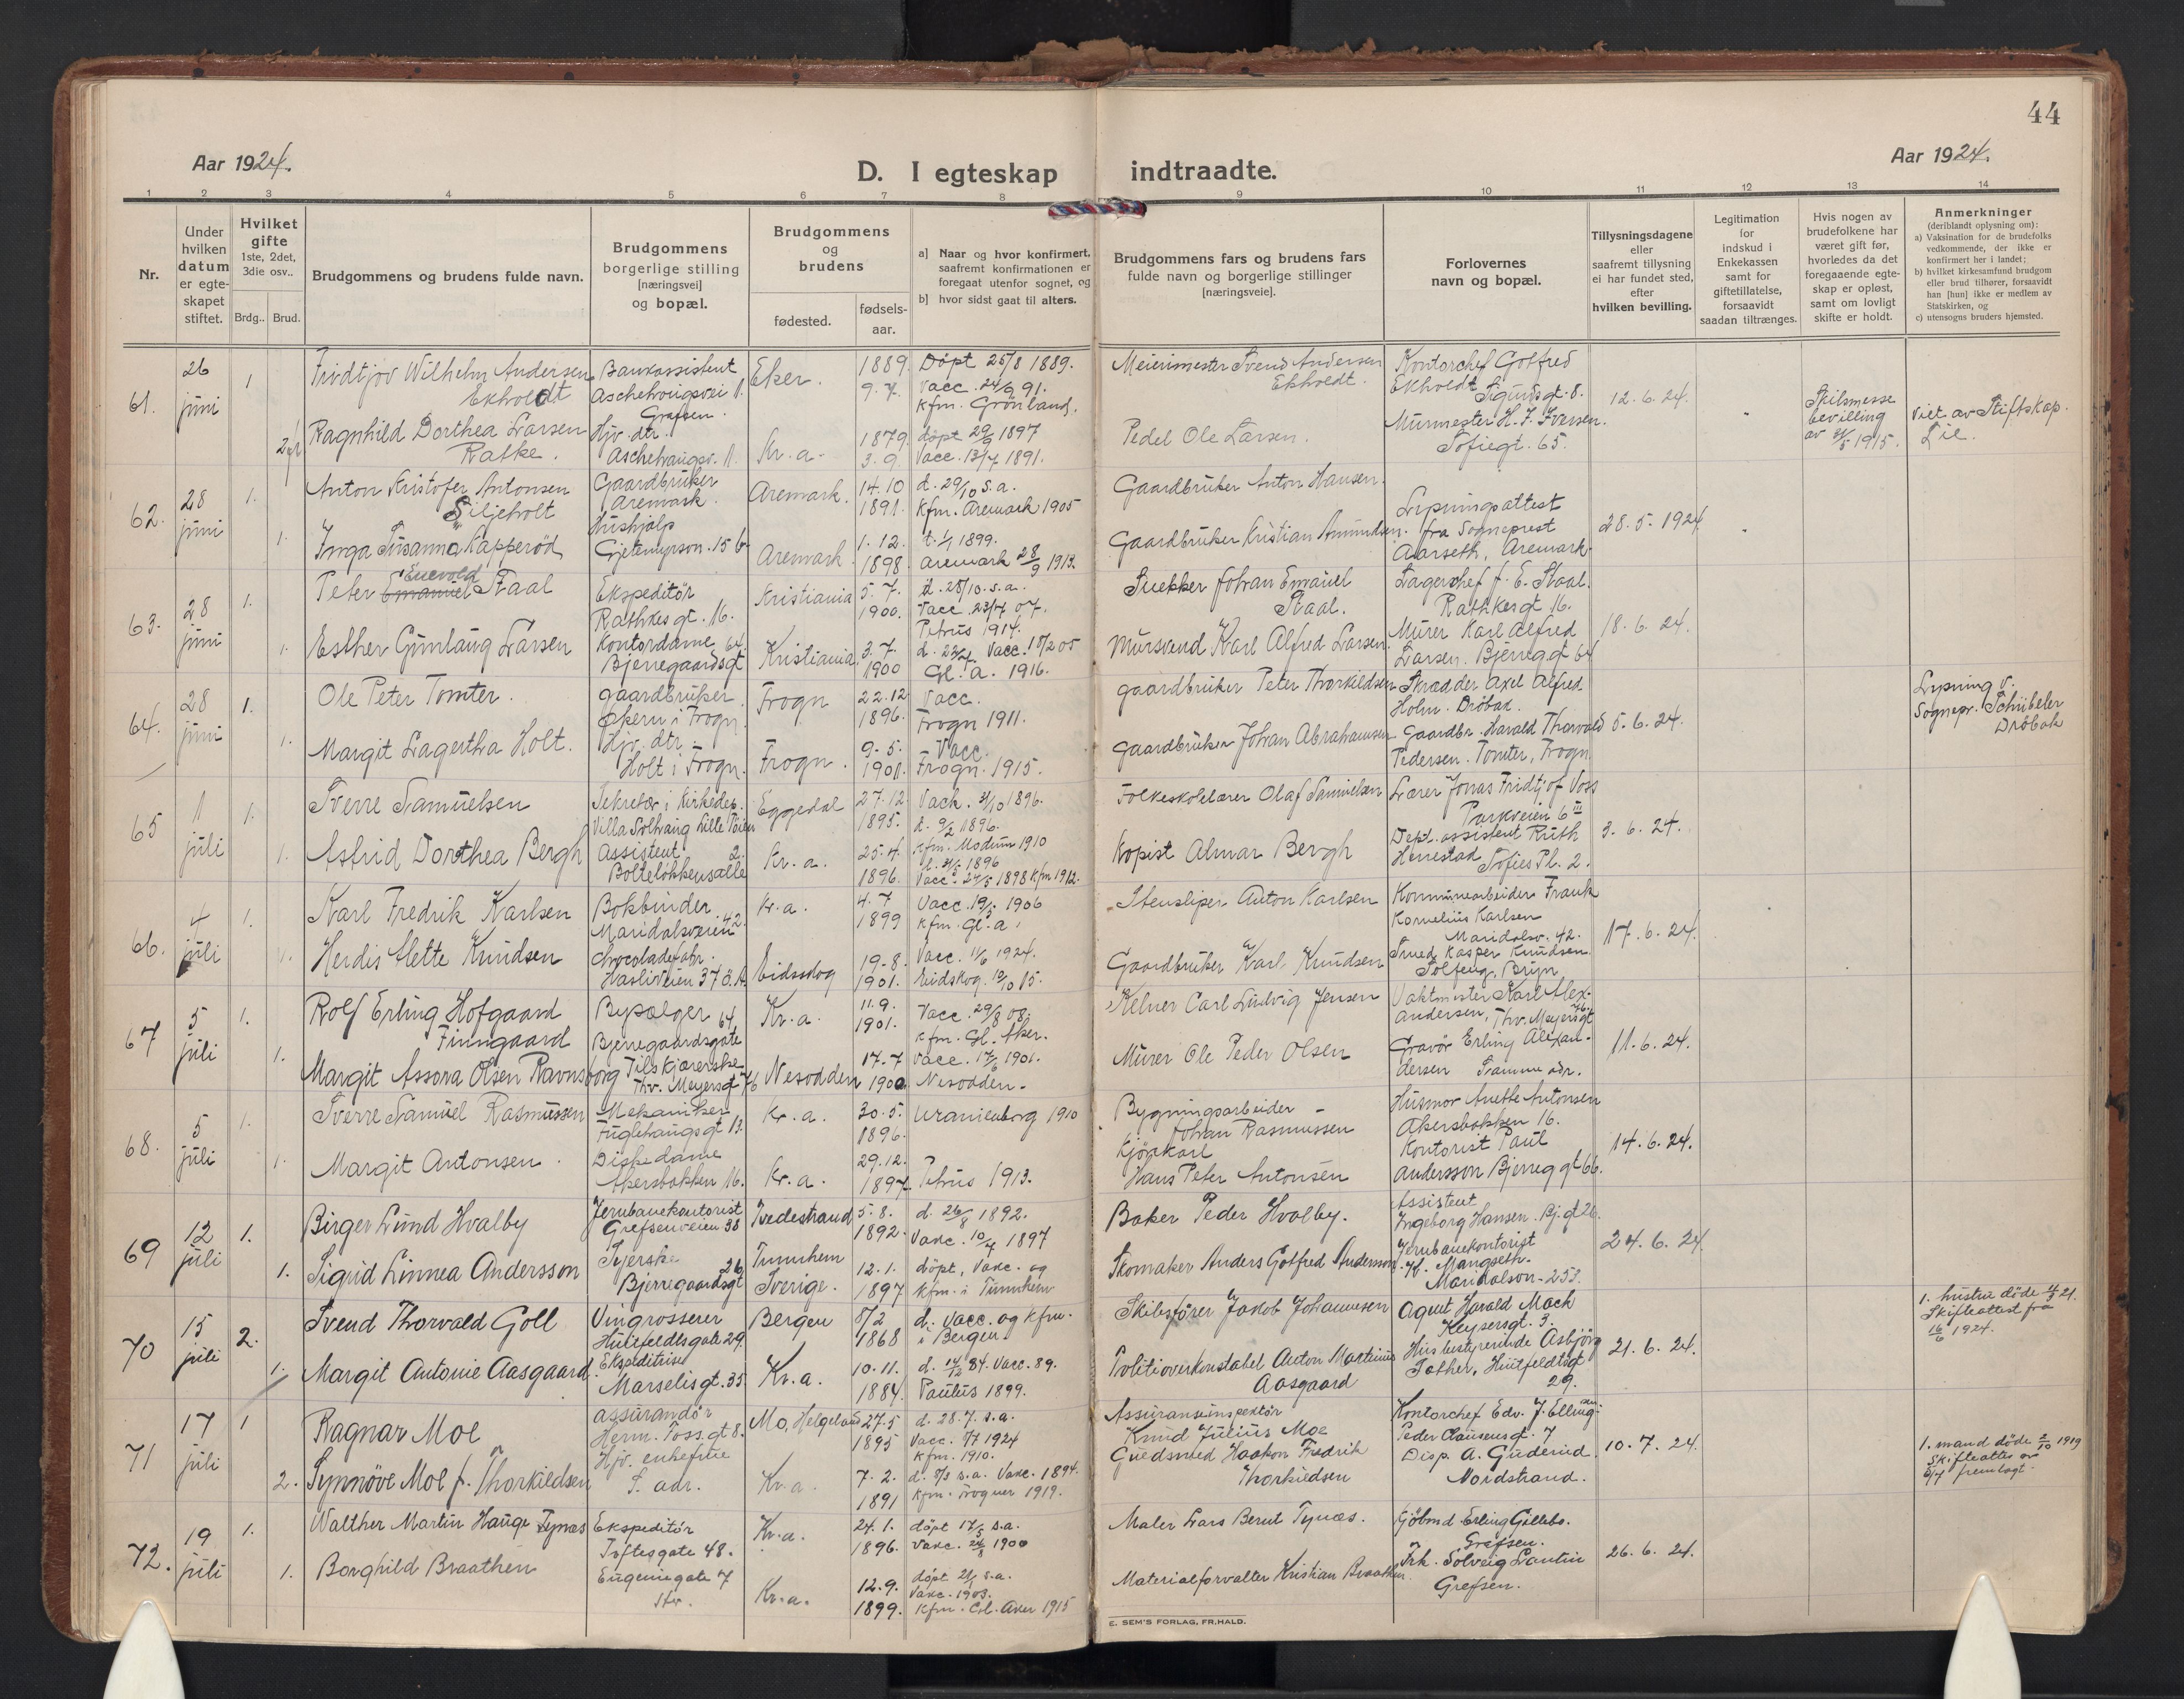 44
Aar 1924.
D. I egteskap indtraadte.
Aar 1924.
1 2 3 4 5 6 7 8 9 10 11 12 13 14
Nr.
Under hvilken datum er egte-skapet stiftet.
Hvilket gifte 1ste, 2det, 3die osv..
Brdg.. Brud.
Brudgommens og brudens fulde navn.
Brudgommens borgerlige stilling [næringsvei] og bopæl.
Brudgommens og brudens
fødested.
fødsels-aar.
a] Naar og hvor konfirmert, saafremt konfirmationen er foregaat utenfor sognet, og
b] hvor sidst gaat til alters.
Brudgommens fars og brudens fars fulde navn og borgerlige stillinger [næringsveie].
Forlovernes navn og bopæl.
Tillysningsdagene eller saafremt tillysning ei har fundet sted, efter hvilken bevilling.
Legitimation for indskud i Enkekassen samt for giftetillatelse, forsaavidt saadan tiltrænges.
Hvis nogen av brudefolkene har været gift før, hvorledes da det foregaaende egte-skap er opløst, samt om lovligt skifte er holdt.
Anmerkninger (deriblandt oplysning om):
a) Vaksination for de brudefolks vedkommende, der ikke er konfirmert her i landet;
b) hvilket kirkesamfund brudgom eller brud tilhører, forsaavidt han [hun] ikke er medlem av Statskirken, og
c) utensogns bruders hjemsted.
61. 26 juni 1
Fridtjov Wilhelm Andersen Ekholdt
Bankassistent Aschehougsvei 11. Grefsen.
Eker. 1889. 9.7.
Døpt 25/8 1889. Vacc. 24/9 91. Kfm. Grønland.
Meierimester Svend Andersen Ekholdt.
Kontorchef Gotfred Ekholdt Sigurdsgt. 8.
12.6.24.
Skilsmesse bevilling av 1915.
Viet av Stiftskap. Lie.
Ragnhild Dorthea Larsen Ratke.
Hjv. dtr. Aschehougsv. 11.
Kr.a. 1879. 3.9.
døpt 29/9 1897 Vacc. 13/7 1891.
Pedel Ole Larsen.
Murmester H. J. Iversen. Sofiegt. 65.
62. 28 juni 1.
Anton Kristofer Antonsen Siljeholt
Gaardbruker Aremark.
Aremark. 14.10 1891.
d. 29/10 s.a. Kfm. Aremark 1905
Gaardbruker Anton Hansen.
Lysningsattest fra Sogneprest Aarseth, Aremark
28.5.1924
1. Inga Susanna Kapperød
Hushjælp Gjetemyrsvn. 15 b
Aremark 1.12. 1898.
d. 1/1 1899. Aremark 28/9 1913.
Gaardbruker Kristian Amundsen.
63. 28 juni 1.
Peter Emanuel Enevold Staal
Ekspeditør Rathkes gt. 16.
Kristiania 5.7. 1900.
d. 28/10. s.a. Vacc. 23/7 07. Petrus 1914.
Snekker Johan Emanuel Staal.
Lagerchef J. E. Staal. Rathkesgt 16.
18.6.24.
1. Esther Gunlaug Larsen
Kontordame Bjerregaardsgt 64.
Kristiania 3.7. 1900
Gl. A. 1916.
Mursvend Karl Alfred Larsen
Murer Karl Alfred Larsen. Bjerreg.gt 64
64. 28 juni 1.
Ole Peter Tomter.
gaardbruker i Frogn.
Frogn 22.12 1896.
Vacc. Frogn 1911.
gaardbruker Peter Thorkildsen
Skrædder Axel Alfred Holm. Drøbak.
5.6.24.
Lysning v. Sognepr. Schübeler Drøbak
1. Margit Lagertha Holt.
Hjv. dtr. Holt i Frogn.
Frogn. 9-5. 1901.
Vacc. Frogn. 1915.
gaardbruker Johan Abrahamsen
Gaardbr. Harald Thorvald Pedersen. Tomter, Frogn.
65 11 juli 1.
Sverre Samuelsen
Sekretær i Kirkedep. Villa Solhaug Lille Tøien
Eggedal 27.12. 1895.
Vacc. 31/10 1896. d. 9/2 1896. Kfm. Modum 1910
Folkeskolelærer Olaf Samuelsen
Lærer Jonas Fridtjof Voss Parkveien 6 III
3.6.24.
1. Astrid Dorthea Bergh
Assistent Bolteløkkensallé 2.
Kr.a. 25.4. 1896.
d. 31/5 1896 Vacc. 24/5 1898 Kfm 1912.
Kopist Almar Bergh
Dept. assistent Ruth Herrestad Sofies Pl. 2.
66. 4 juli 1.
Karl Fredrik Karlsen
Bokbinder Maridalsveien 42.
Kr.a. 4.7 1899
Vacc. 19/5 1906 Kfm. Gl. a.
Stensliper Anton Karlsen
Kommunearbeider Frank Kornelius Karlsen Maridalsv. 42.
17.6.24.
1. Herdis Alette Knudsen
Chocoladefabr. Hasleveien 37 Ø.A.
Eidsskog 19-8. 1901.
Vacc. 11/6 1924. Eidskog 10/10 15.
Gaardbruker Karl Knudsen
Smed Kasper Knudsen Solheug, Bryn
67 5 juli 1.
Rolf Erling Hofgaard Finngaard
Bypælger Bjerregaardsgate 64
Kr.a. 11.9. 1901.
Vacc. 29/8 08. Kfm. Gl. Aker.
Kelner Carl Ludvig Jensen
Vaktmester Karl Alex. Andersen, Thv. Meyersgt 76
11.6.24.
1. Margit Assora Olsen Ravnsborg
Tilskjærerske Thv. Meyersgt 76
Nesodden 17-7 1900
Vacc. 17/6 1901. Nesodden.
Murer Ole Peder Olsen
Gravør Erling Alexandersen Samme adr.
68. 5 juli 1.
Sverre Samuel Rasmussen
Mekaniker Fuglehaugsgt 13.
Kr.a. 30.5. 1896.
Uranienborg 1910
Bygningsarbeider - Johan Rasmussen
Husmor Anette Antonsen Akersbakken 16.
14.6.24.
1. Margit Antonsen.
Diskedame Akersbakken 16.
Kr.a. 29.12. 1897
Petrus 1913.
Kjørekarl Hans Peter Antonsen
Kontorist Paul Andersson Bjerreg gt 66.
69 12 juli 1.
Birger Lund Hvalby
Jernbanekontorist Grefsenveien 38
Tvedestrand 5.8. 1892.
d. 26/8 1892. Vakc. 10/7 1897
Baker Peder Hvalby.
Assistent Ingeborg Hansen. Bj.gt 26.
24.6.24.
1. Sigrid Linnea Andersson
Syerske Bjerregaardsgt 26
Tunnhem Sverige. 12.1. 1897
døpt, Vakc. og kfm. i Tunnhem
Skomaker Anders Gotfred Andersson
Jernbanekontorist H. Mangseth. Maridalsvn. 253.
70 15 juli 2.
Svend Thorvald Goll
Vingrosserer Huitfeldtsgate 29.
Bergen 5/2 1868
d. vacc. og kfm. i Bergen.
Skibsfører Jakob Johannesen
Agent Harald Mack Keysersgt. 3.
21.6.24.
1. hustru døde 21. Skifteattest fra 16/6 1924.
1. Margit Antonie Aasgaard
Ekspeditrise Marselis gt. 35
Kr.a. 10.11. 1884.
d. 14/12 84. Vacc. 89. Paulus 1899.
Politioverkonstabel Anton Martinius Aasgaard
Husbestyrerinde Asbjørg Father, Huitfeldtsgt 29.
71 17 juli 1
Ragnar Moe
Assurandør Herm. Foss. gt 8.
Mo, Helgeland 27.5 1895
d. 28.7. s.a. Vacc. 7/7 1924 Kfm. 1910.
Assuranseinspektør Knud Julius Moe
Kontorchef Edv. J. Ellingsen Peder Clausensgt. 7
10.7.24.
1. mand døde 2/10 1919 Skifteattest av 5/7 fremlagt.
2. Synnøve Moe f. Thorkildsen
Hjv. enkefrue S. adr.
Kr.a. 7.2. 1891
d. 3/3 s.a. Vakc. 1894. Kfm. Frogner 1919.
Guldsmed Haakon Fredrik Thorkildsen
Disp. A. Guderud. Nordstrand.
72. 19 juli 1.
Walther Martin Hauge Tynæs
Ekspeditør Toftesgate 48.
Kr.a. 24.1. 1896.
døpt 17/5 s.a. Vakc. 24/8 1900
Maler Lars Bernt Tynæs.
Gjøbmd Erling Gillebo. Grefsen.
26.6.24.
1. Borghild Braathen
Eugeniegate 7
Kr.a. 12.9. 1899.
døpt s.a. Vakc. 1903. Kfm. Gl. Aker 1915
Materialforvalter Kristian Braathen.
Frk. Solveig Lantin Grefsen.
E. SEM'S FORLAG, FR.HALD.